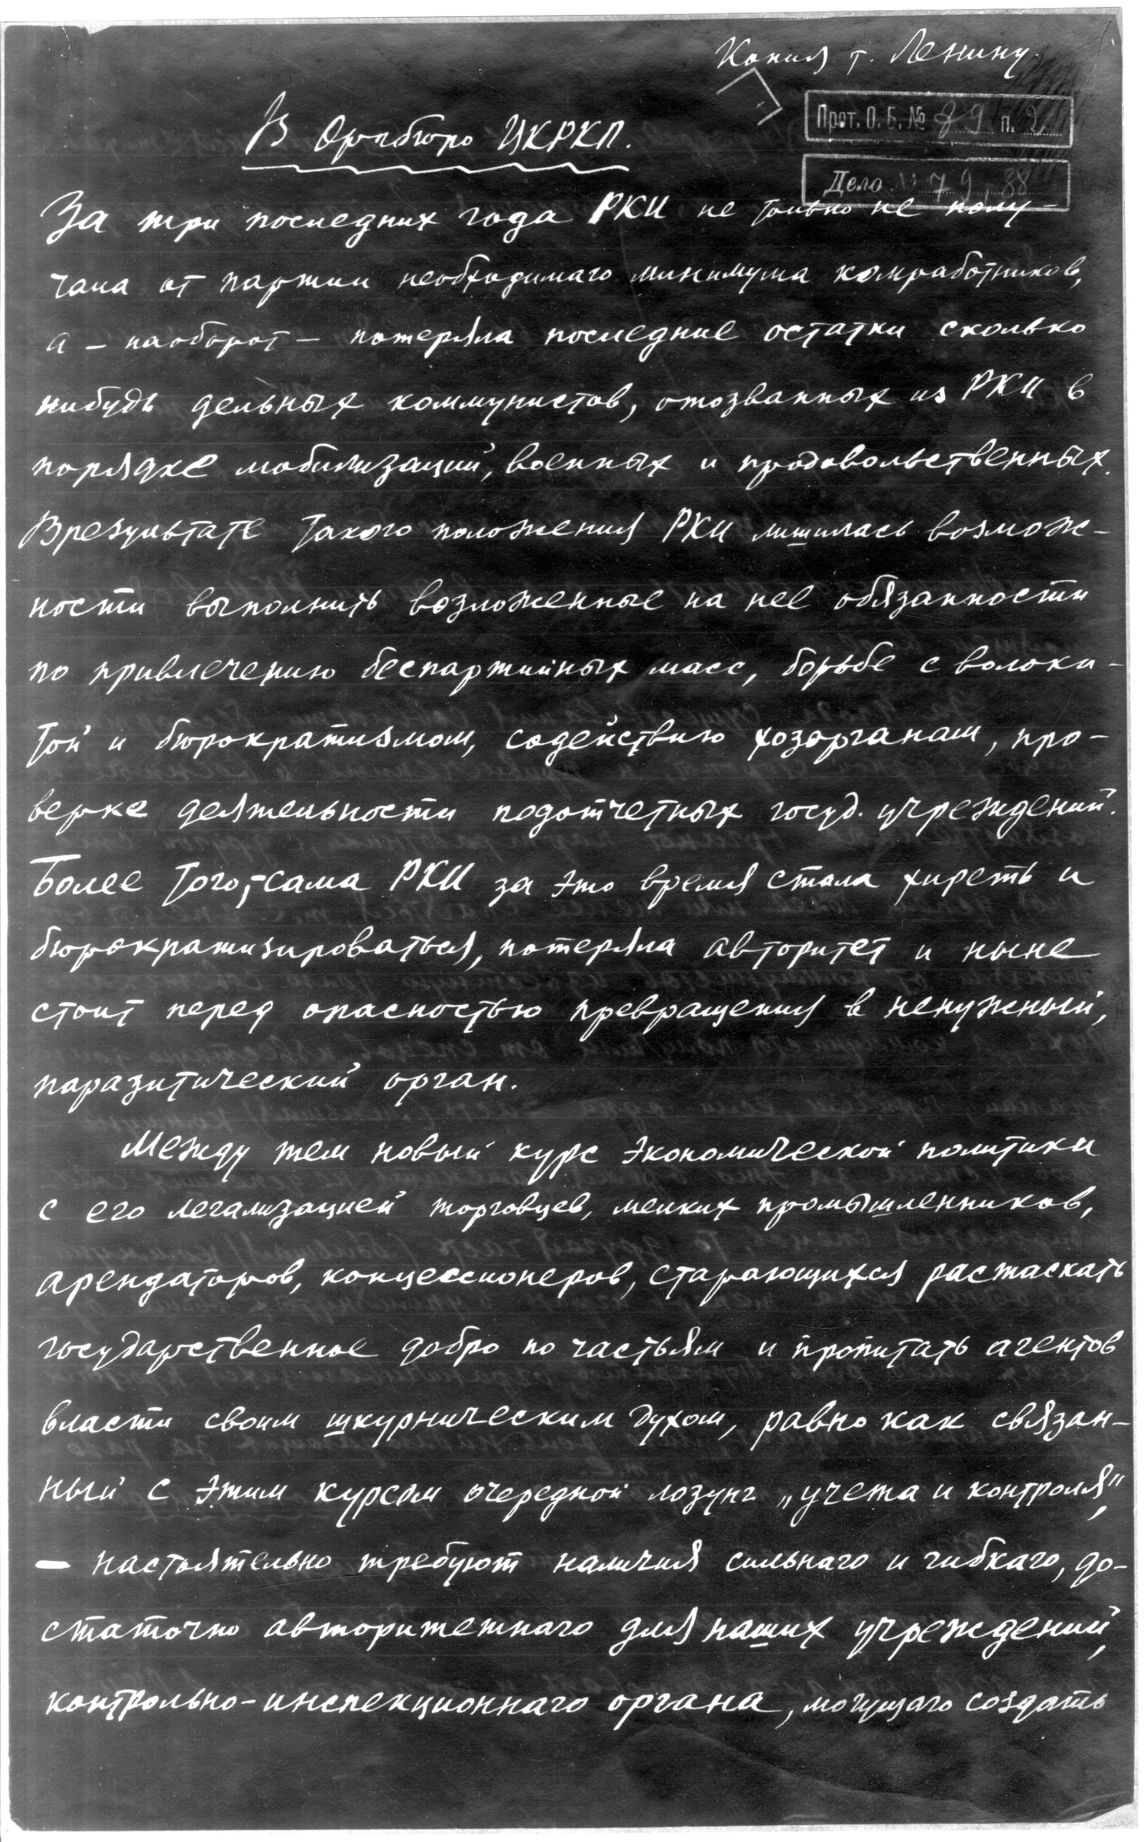 Копия т. Ленину.
Прот. О. Б. № 89 п. 2
Дело № 79, 38
В Оргбюро ЦКРКП.
За три последних года РКИ не только не полу-
чала от партии необходимаго минимума комработников,
а – наоборот – потеряла последние остатки сколько
нибудь дельных коммунистов, отозванных из РКИ в
порядке мобилизаций, военных и продовольственных.
В результате такого положения РКИ лишилась возмож-
ности выполнить возложенные на нее обязанности
по привлечению беспартийных масс, борьбе с волоки-
той и бюрократизмом, содействию хозорганам, про-
верке деятельности подотчетных госуд. учреждений.
Более того,–сама РКИ за это время стала хиреть и
бюрократизироваться, потеряла авторитет и ныне
стоит перед опасностью превращения в ненужный,
паразитический орган.
Между тем новый курс экономической политики
с его легализацией торговцев, мелких промышленников,
арендаторов, концессионеров, старающихся растаскать
государственное добро по частям и пропитать агентов
власти своим шкурническим духом, равно как связан-
ный с этим курсом очередной лозунг „учета и контроля",
– настоятельно требуют наличия сильнаго и гибкаго, до-
статочно авторитетнаго для наших учреждений,
контрольно-инспекционнаго органа, могущаго создать